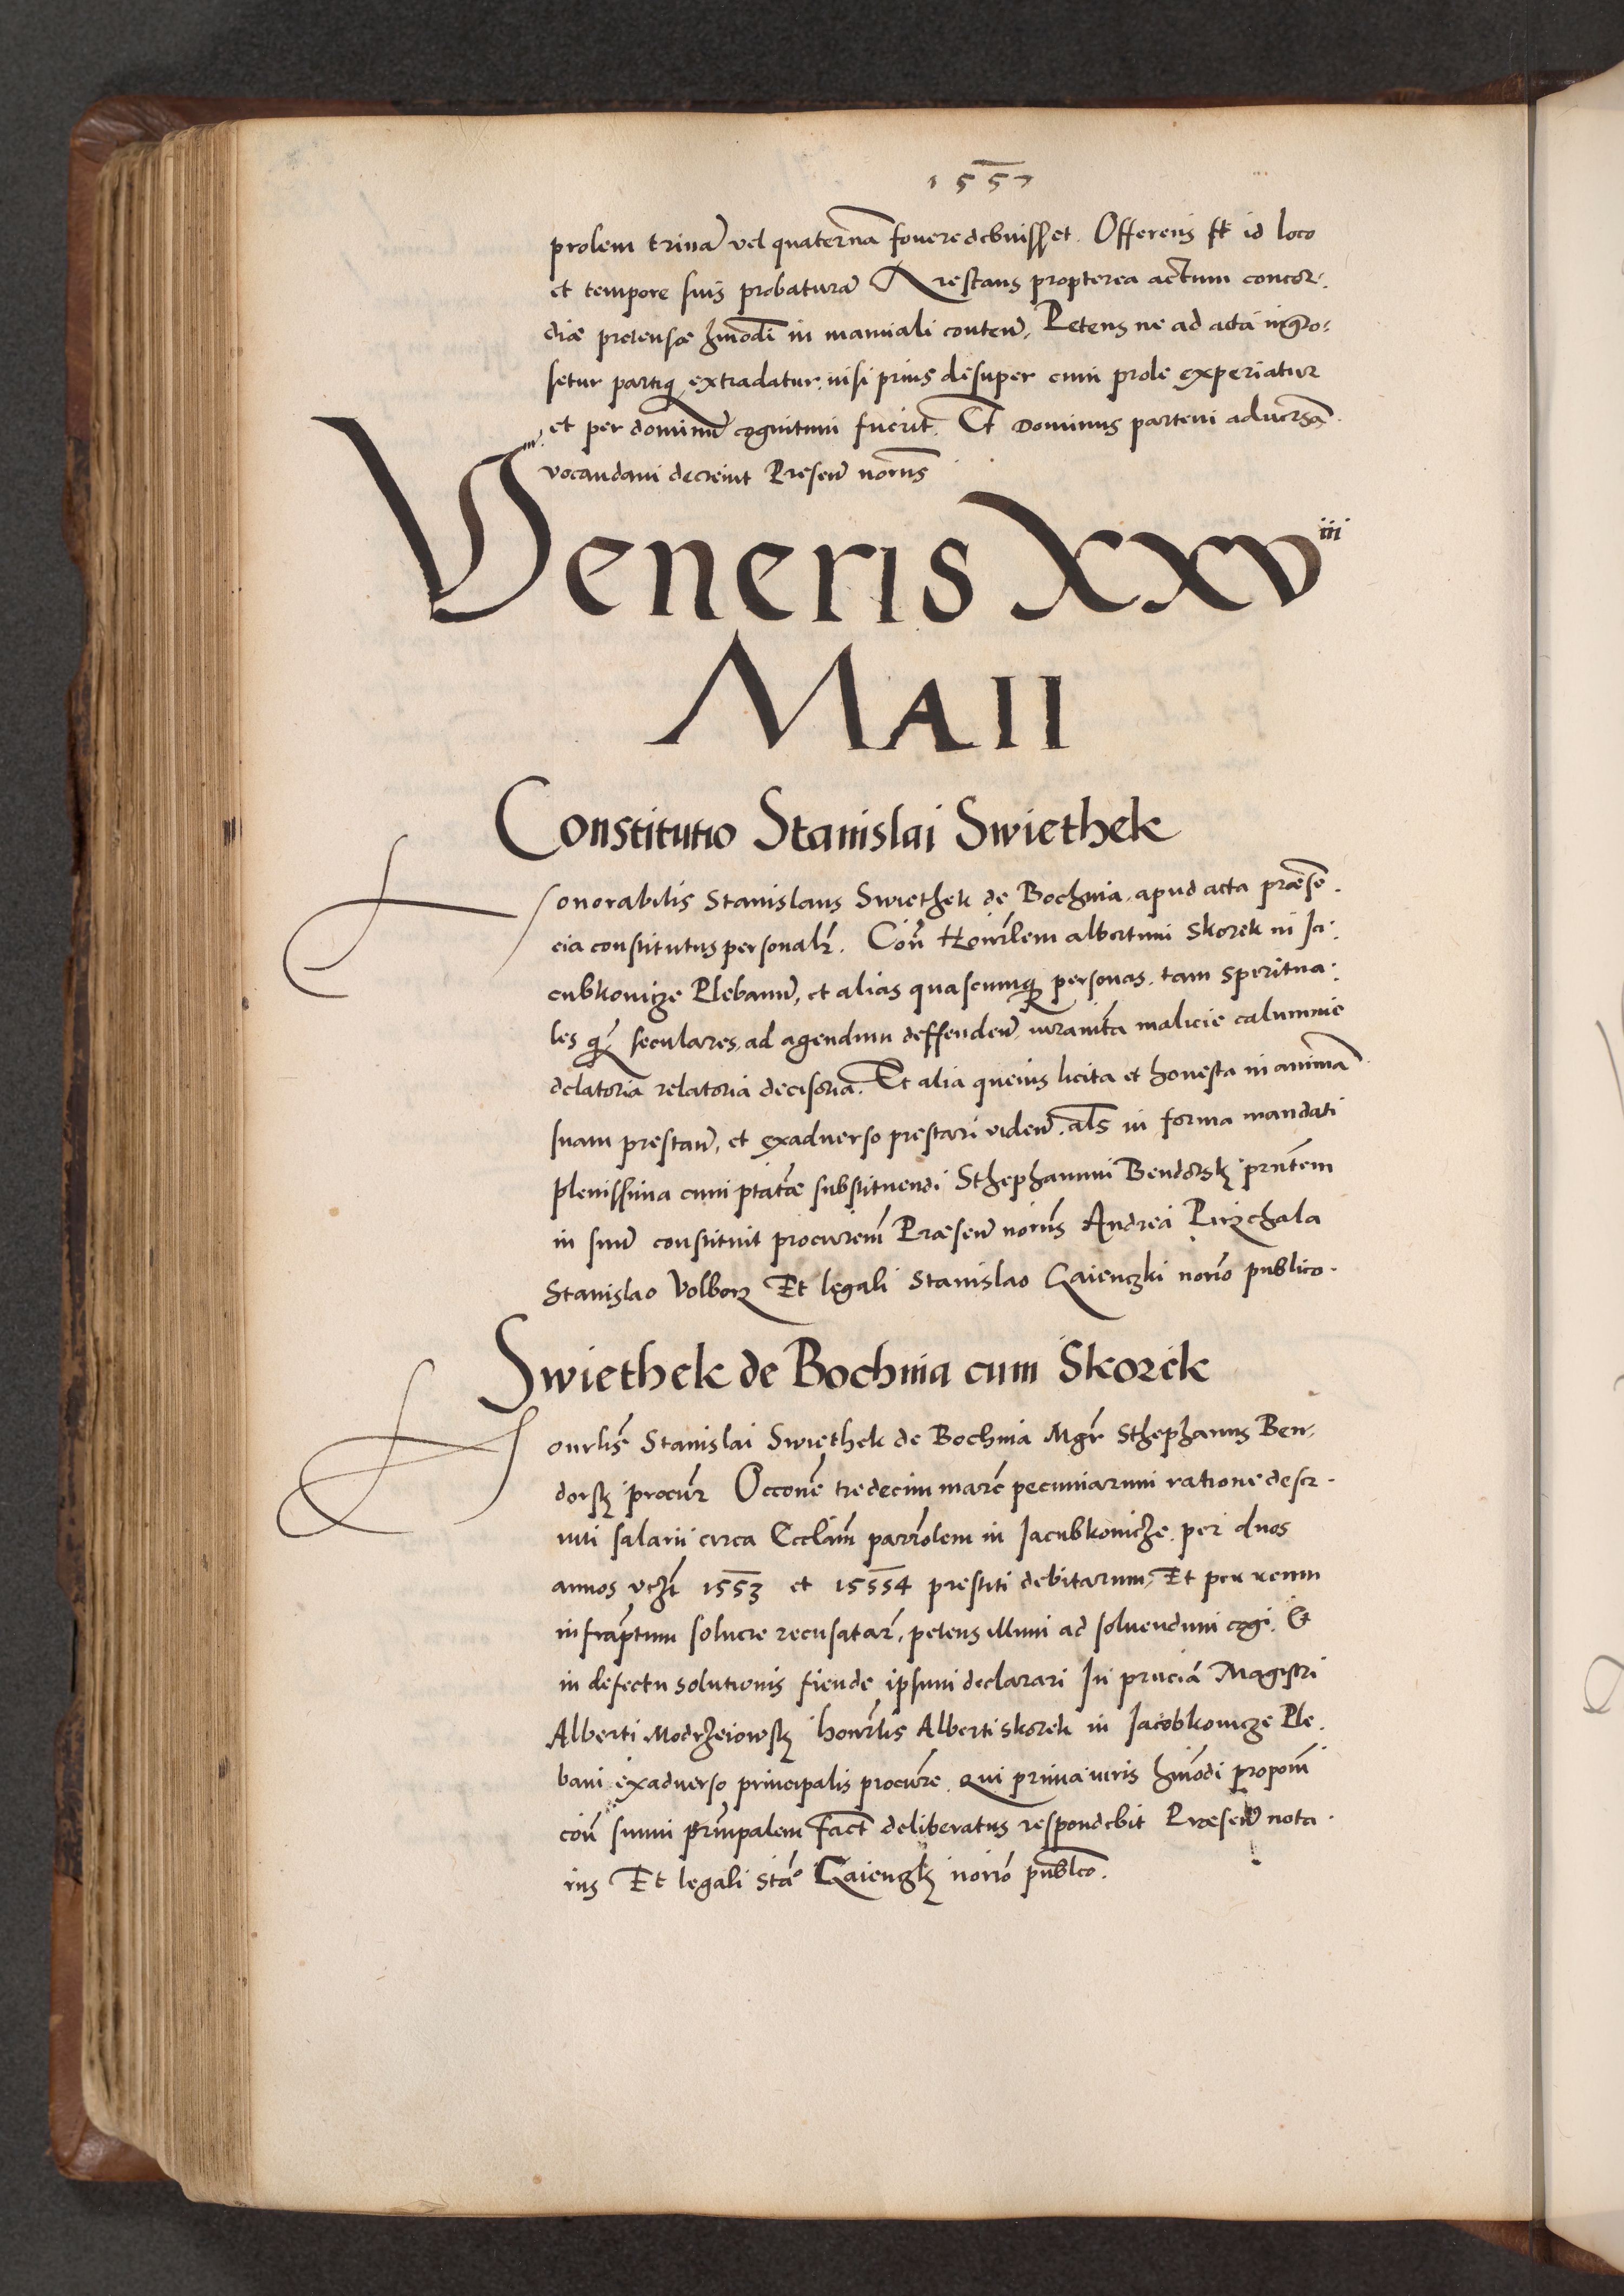 1557
prolem trinā vel quaternā fovere debuisset. Offerens id loco
et tempore suis probaturā Arestans propterea actum concor.
diæ pretensæ hmōdi in manuali conteñ. Petens ne ad acta ingro:
setur partiq̨ extradatur, nisi prius desuper cum prole experiatur
et per dominū cognitum fuerit. Et Dominus partem adversā
vocandam decrevit Preseñ norūs
Veneris XXV iii
MAII
Constitutio Stanislai Swiethek
Honorabilis Stanislaus Swiethek de Bochnia, apud acta præsē.
cia constitutus personalr̃. Coñ Honrĩlem albertum Skorek in Ja:
cubkovicze Plebanū, et alias quascumq̨ personas, tam speritua:
les q̃ seculares, ad agendum deffendeñ, iuramr̃ta malicie calumnie
delatoria relatoria decisoria. Et alia quevis licita et honesta in animā
suam prestañ, et exadverso prestari videñ. als̃ in forma mandati
plenissima cum ptātæ substituendi Sthephanum Bendorsk̨ pñtem
in suū constituit procurem̃ Præseñ norūs Andrea Pirzchala
Stanislao Volborz Et legali Stanislao Gaienczki norīo publico.
Swiethek de Bochnia cum Skorek
Honrlis̃ Stanislai Swiethek de Bochnia Mgr̃ Sthephanus Ben,
dorsk̨ procūr Occonē tredecim marc̃ pecuniarum ratione deser.
viti salarii circa Ecclīam parrōlem in Jacubkonicze, per duos
annos vczt̃ 1553 et 15554 prestiti debitarum, Et per reum
infrāptum solvere recusatar̃, petens illum ad solvendum cogi. Et
in defectu solutionis fiende ipsum declarari In pñciā Magistri
Alberti Modrzeiowsk̨ honrl̃is Alberti Skorek in Jacobkovicze Ple.
bani exadverso principalis procūre, qui prima iuris hmōdi proponī
coñ suum prinīpalem fact̃ deliberatus respondebit Præseñ nota.
rius Et legali stāo Gaienczk̨ norīo publco.